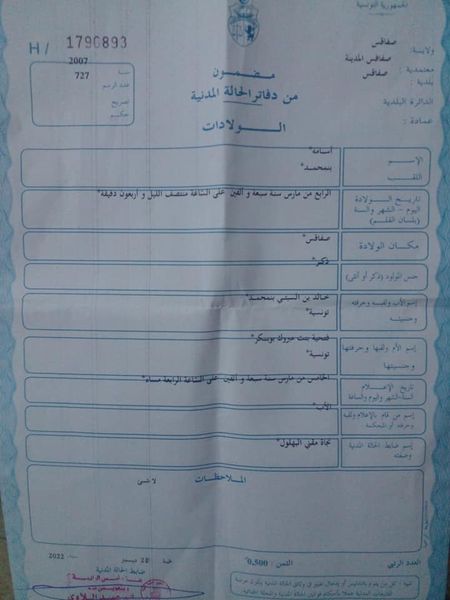 الجمهورية التونسية
H/ 1790893
ولاية: صفاقس
معتمدية: صفاقس المدينة
بلدية: صفاقس
الدائرة البلدية
عمادة:
سنة 2007
عدد الرسم 727
تصريح
حكم
مضمون
من دفاتر الحالة المدنية
الولادات
الإسم أسامة*
اللقب بنمحمد*
تاريخ الولادة
اليوم - الشهر والسنة الرابع من مارس سنة سبعة و ألفين على الساعة منتصف الليل و أربعون دقيقة*
(بلسان القلم)
مكان الولادة صفاقس*
جنس المولود (ذكر أو أنثى) ذكر*
إسم الأب ولقبه وحرفته خالد بن السبتي بنمحمد*
وجنسيته تونسية*
إسم الأم ولقبها وحرفتها فتحية بنت مبروك بوبسكر*
وجنسيتها تونسية*
تاريخ الإعلام
السنة-الشهر واليوم والساعة الخامس من مارس سنة سبعة و ألفين على الساعة الرابعة مساء*
إسم من قام بالإعلام ولقبه الأب*
وحرفته أو المحكمة
إسم ضابط الحالة المدنية نجاة مقني البهلول*
وصفته
الملاحظات
لا شئ
العدد الرتبي
الثمن: 0,500*
20 ديسمبر سنة 2022
ضابط الحالة المدنية